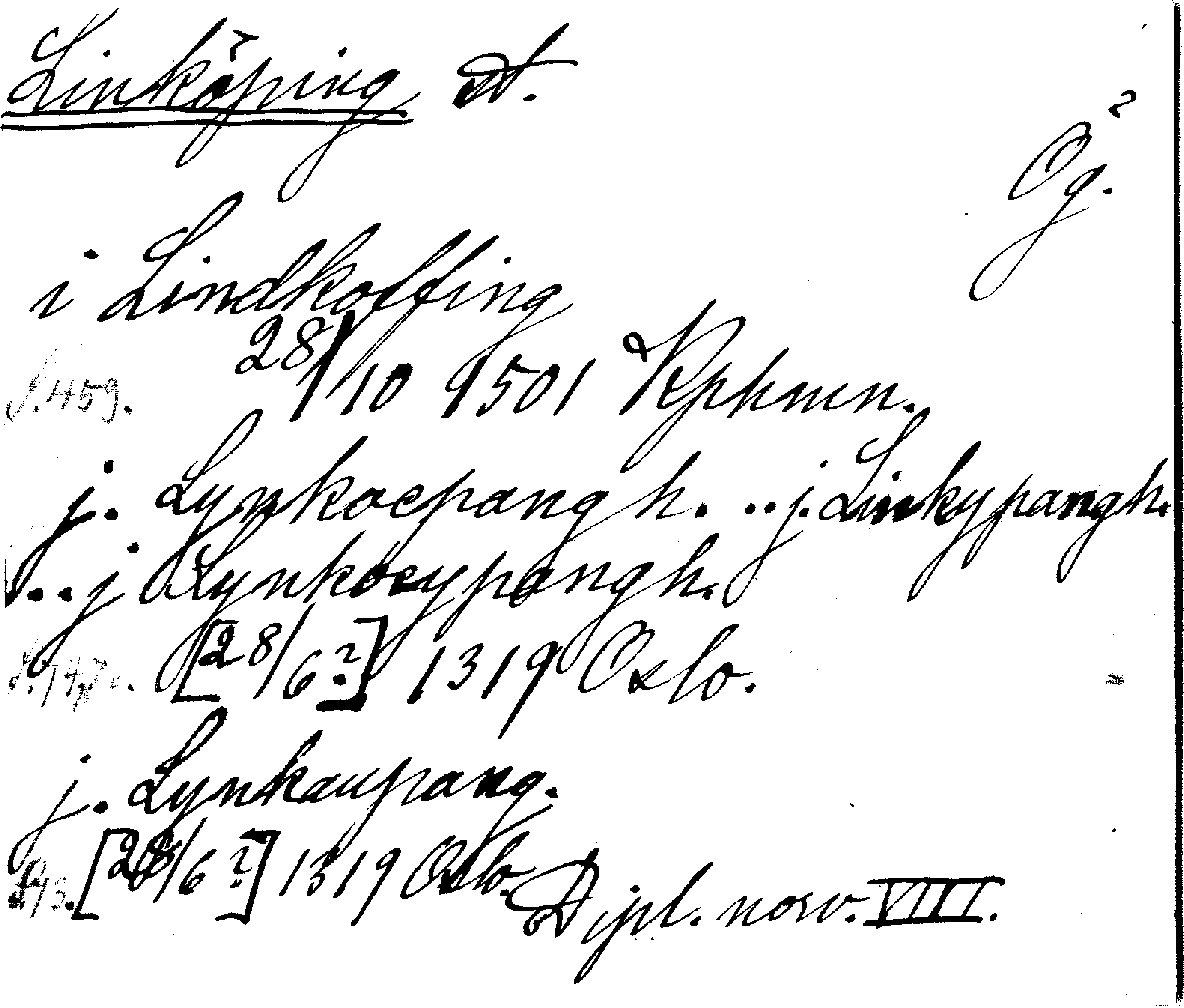 Linköping st.
Ög.
i Lindkoffing
S. 459. 28/10 1501 Kphmn.
j. Lynkoepangh. .. j. Linkypangh.
.. j Lynkoeypangh.
[28/6?] 1319 Oslo.
j. Lynkaupang.
[28/6?] 1319 Oslo.
Dipl. norv. VIII.